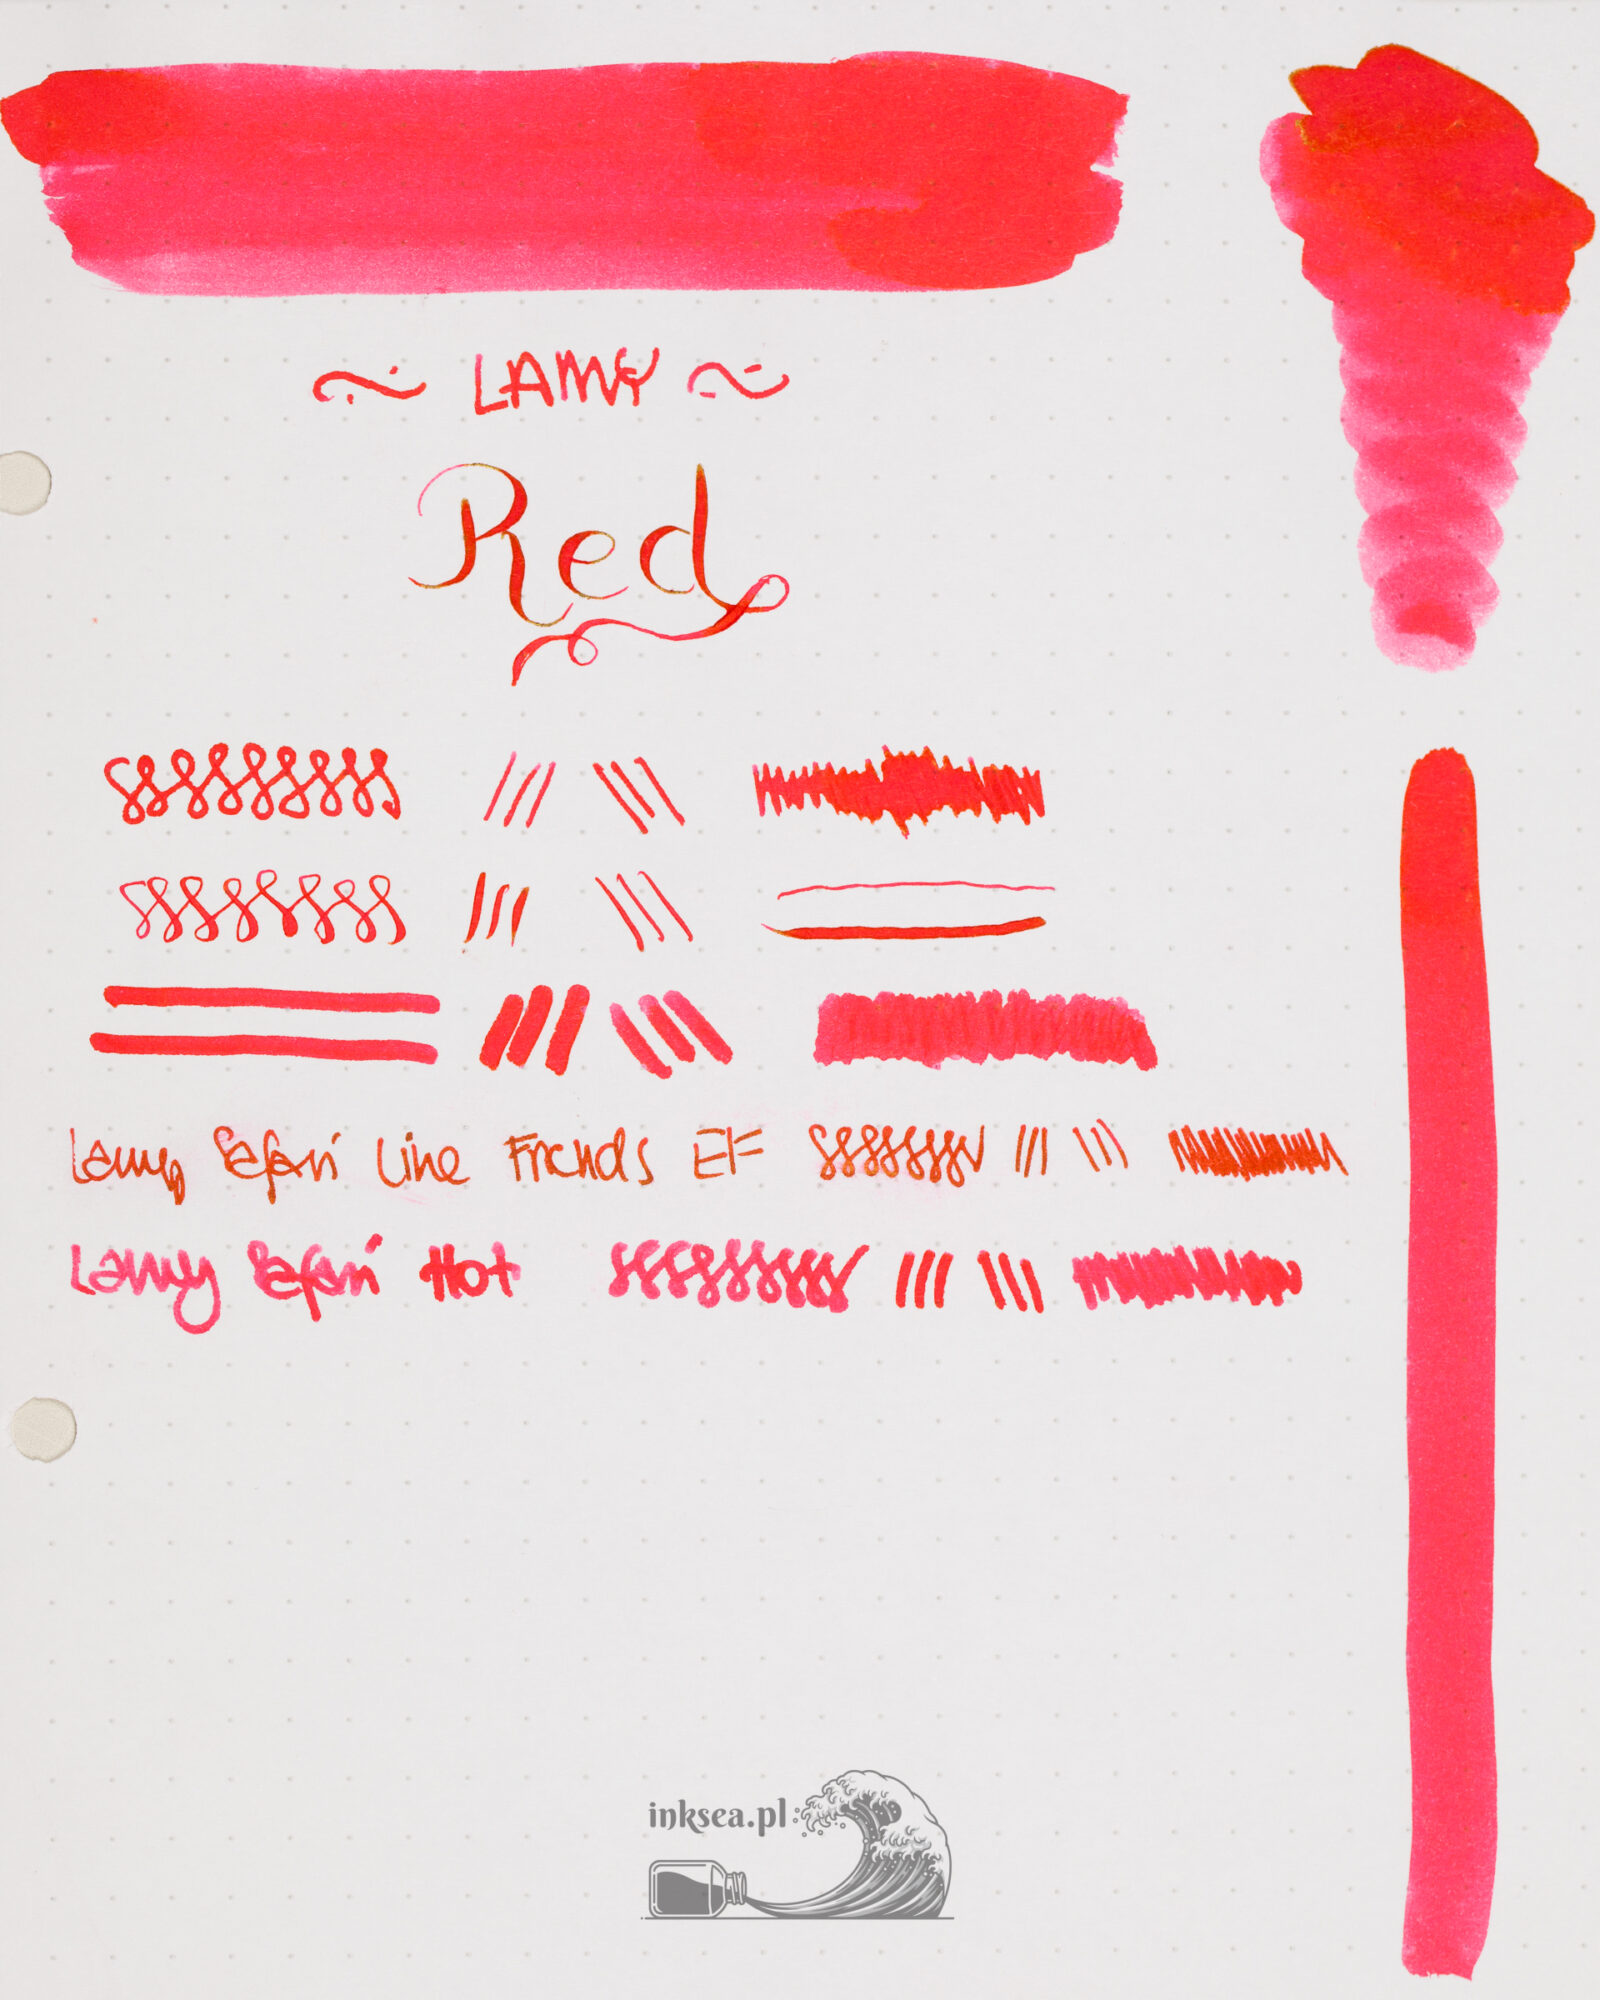 ~ LAMY ~
Red
Lamy Safari Line Friends EF
Lamy Safari Hot
inksea.pl